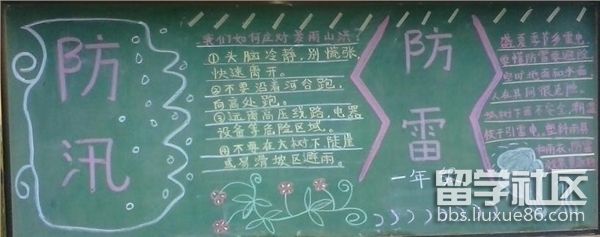 防汛
我们如何应对暴雨山洪?
①头脑冷静,别慌张,
快速离开。
②不要沿着河谷跑,
向高处跑。
③远离高压线路,电器
设备等危险区域。
④不要在大树下陡崖
或易滑坡区避雨。
防雷
一年
盛夏季节多雷电,
要懂防雷要避险
树下面不安全,
引雷电,塑料雨具
留学社区
bbs.liuxue86.com